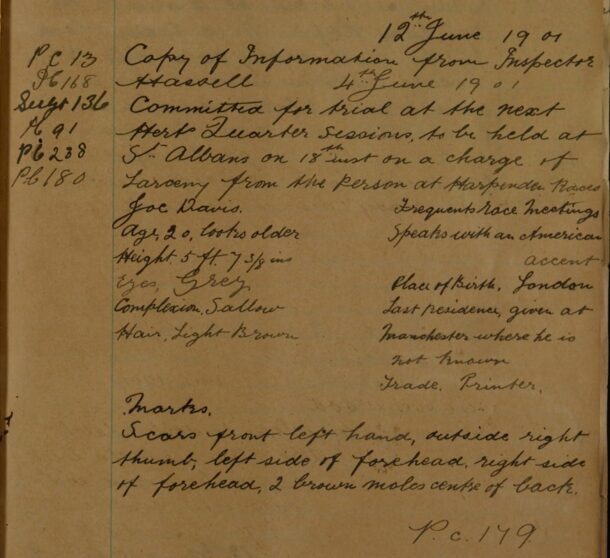 12th June 1901
Pc 13 Copy of Information from Inspector
Pc 168 Hassell 4th June 1901
Sergt 136 Committed for trial at the next
Pc 91 Herts Quarter Sessions, to be held at
Pc 238 St Albans on 18th inst on a charge of
Pc 180 Larceny from the Person at Harpenden Races
Joe Davis. Frequents race Meetings
Age, 20, looks older Speaks with an American
accent
Height. 5 ft. 7 5/8 ins
Eyes, Grey Place of Birth, London
Complexion, Sallow Last residence, given at
Hair, Light Brown Manchester where he is
not known
Trade. Printer.
Marks.
Scars front left hand, outside right
thumb, left side of forehead, right side
of forehead, 2 brown moles centre of back.
P.c. 179